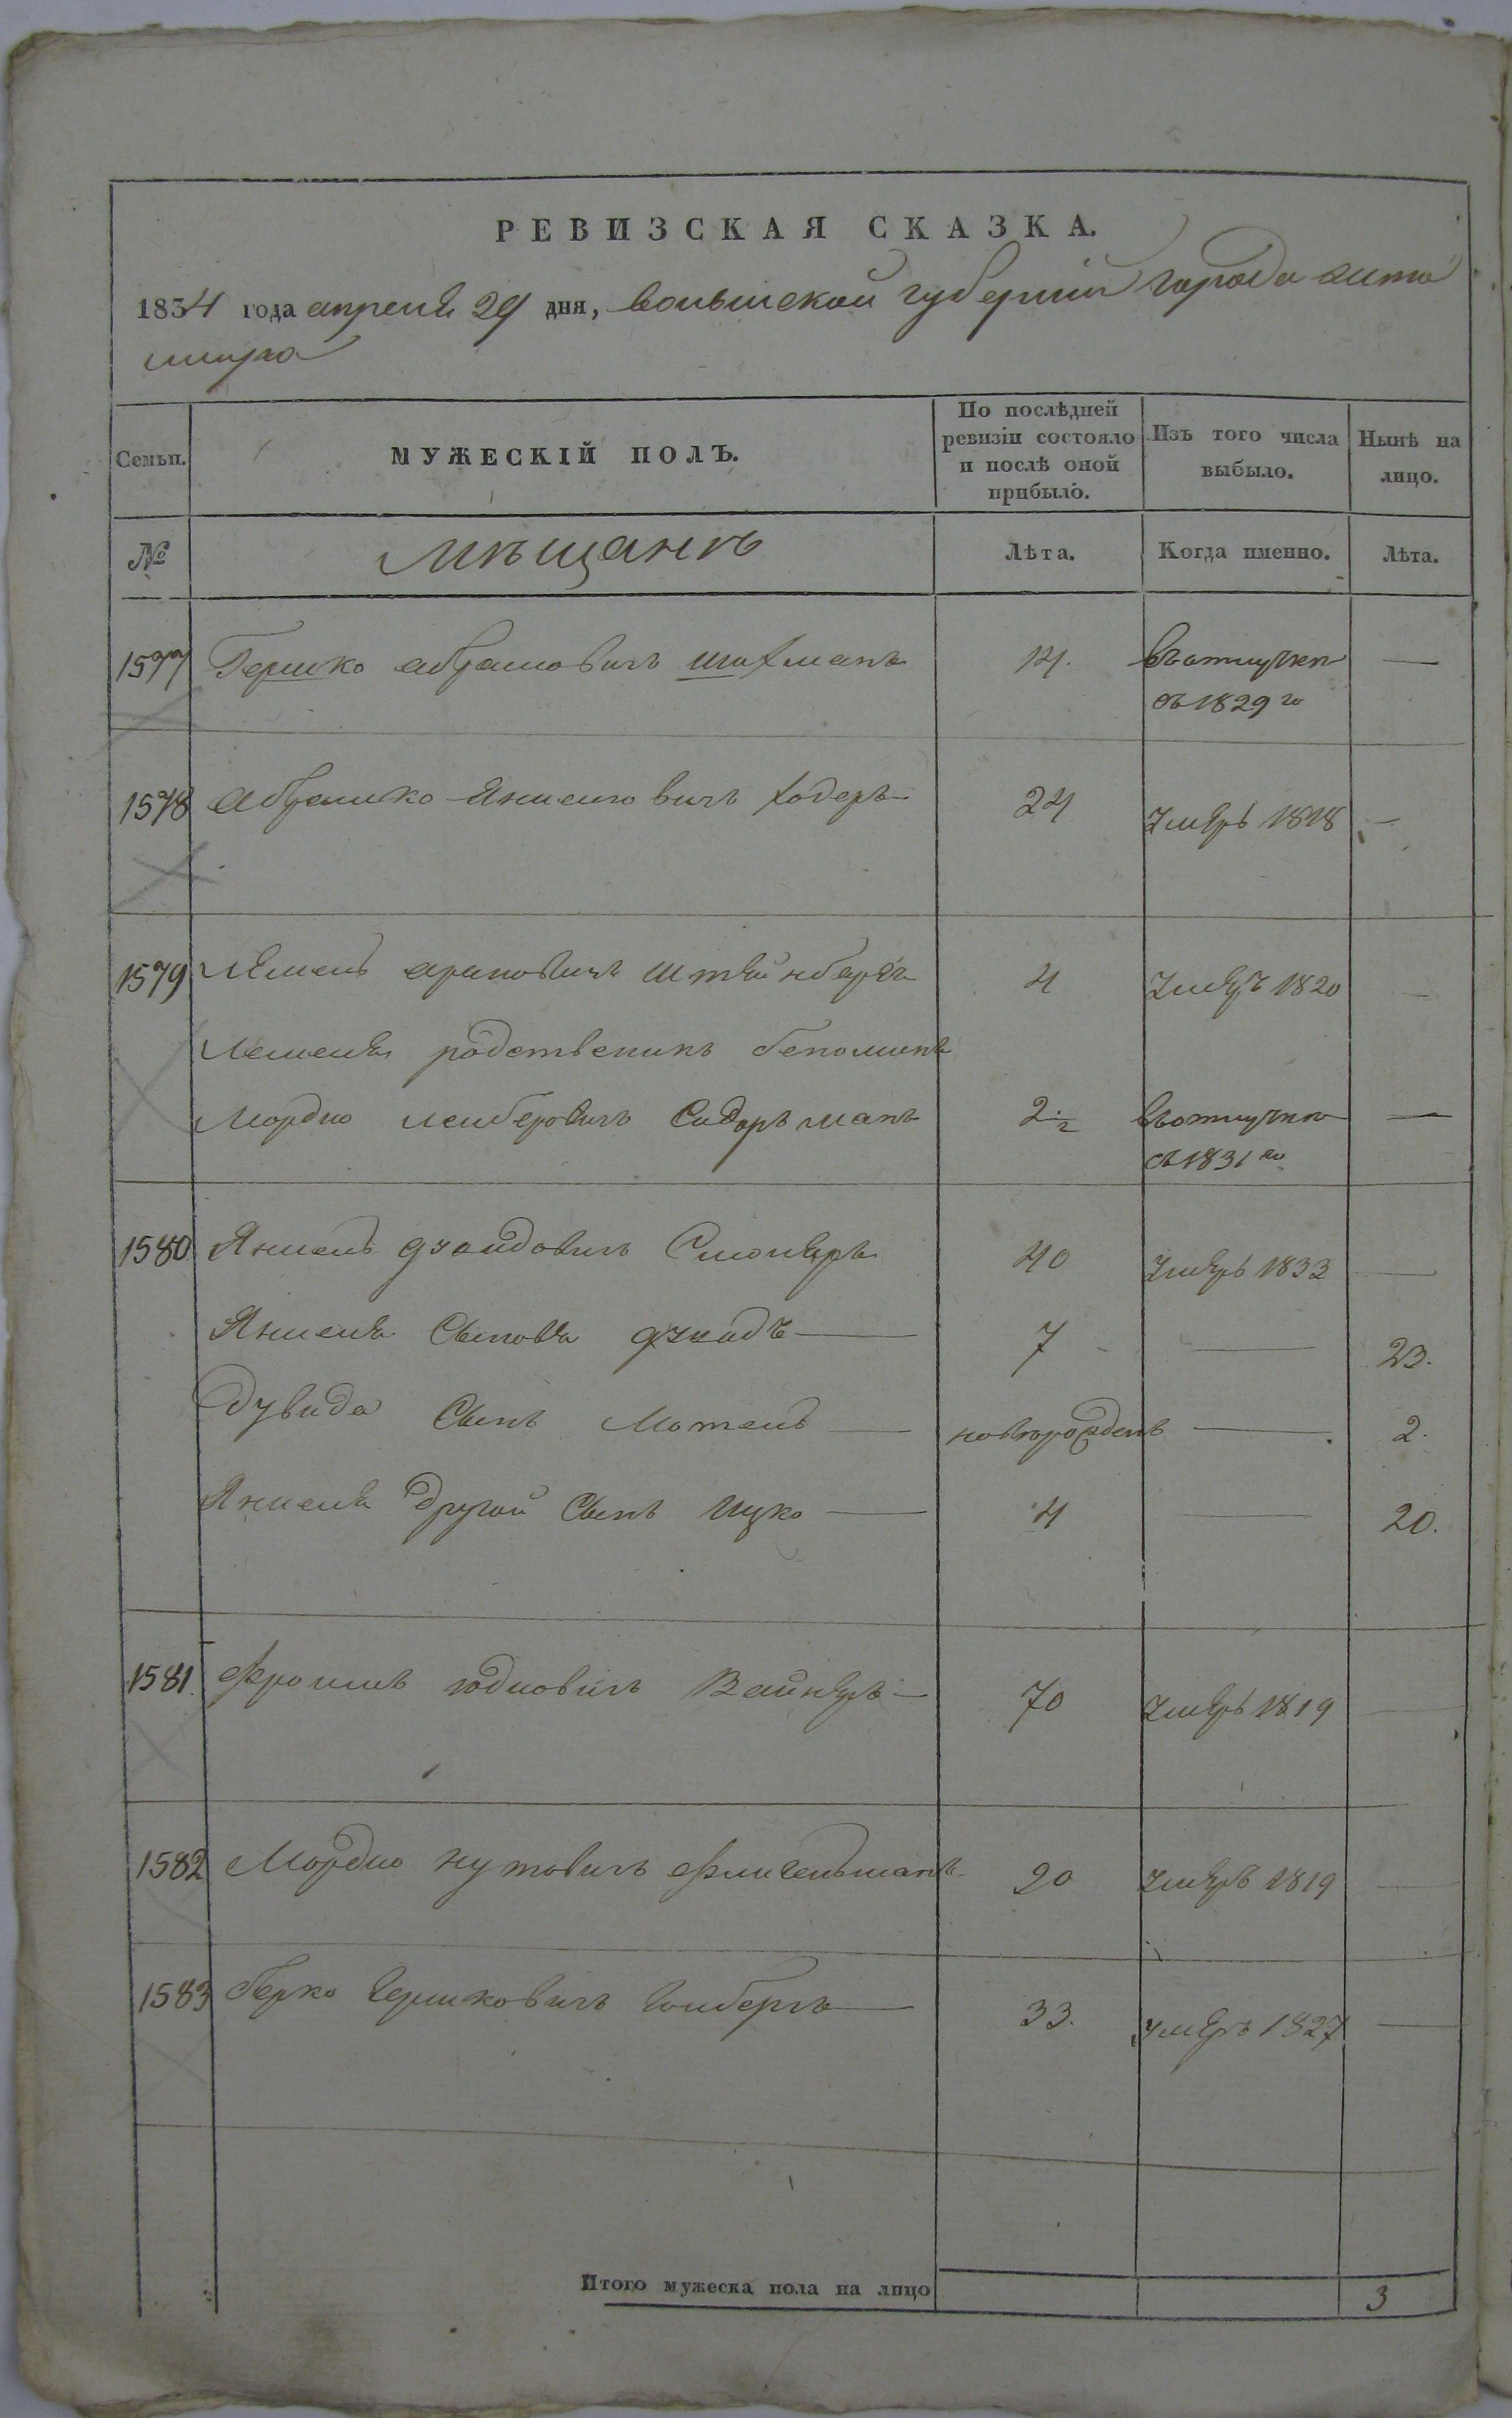 РЕВИЗСКАЯ СКАЗКА.
1834 года апреля 29 дня, волынской губернии города жито
мира
Семьи. МУЖЕСКІЙ ПОЛЪ. По послѣдней ревизіи состояло и послѣ оной прибыло. Изъ того числа выбыло. Нынѣ на лицо.
№ мѣщанъ Лѣта. Когда именно. Лѣта.
1577 Гершко абрамовичъ шихманъ 14. въотлучке —
съ 1829 го
1578 абрамко Янкелиовичъ ходеръ 24 умеръ 1818 —
1579 Лейзеръ ароновичъ штейнбергъ 4 умеръ 1820 —
родственикъ
Мордко лейберовичъ Сидорманъ 2 1/2 въотлучке —
съ 1831 го
1580 Янкель дувидовичъ 40 умеръ 1833 —
Янкеля Сыновья дувидъ — 7 — 23.
Дувида Сынъ Мотель — новорожденъ — 2.
Янкеля другой Сынъ Ицко — 4 — 20.
1581 Фроимъ юдковичъ Вайнеръ — 70 умеръ 1819 —
1582 Мордко нутовичъ 20 умеръ 1819 —
1583 Берко Гершковичъ — 33. умеръ 1827 —
Итого мужеска пола на лицо 3